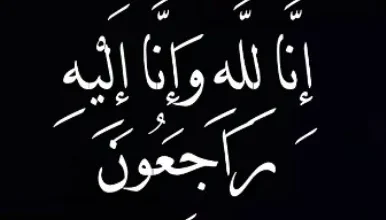 إِنَّا لِلَّٰه وَإِنَّا إِلَيْهِ
رَاجَعُونَ